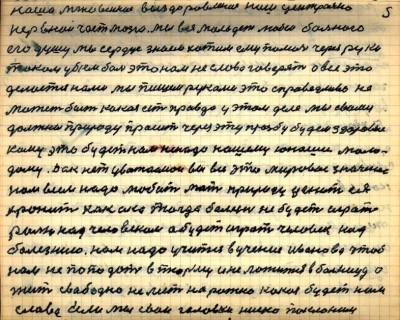 наша мгновенное выздоровление наш центрально 5
нервной части мозга. мы вся молодеж любого больного
его душу мы сердце знаем хотим ему помочь через руки
током убьем боль это нам не слова говорят а все это
делается нами мы пишем руками это справедливо не
может быть какая есть правда у этом деле мы своими
должны природу просить через эту прозьбу будем здоровие
кому это будет нам ненадо нашему юноши моло-
дому. Как нет уважаемои вы все это мировое значение
нам всем надо любить мать природу ценить ея
хронить как око тогда болезнь не будет играть
роль над человеком а будет играть человек над
болезнию. нам надо учится в учение Иванова чтоб
нам не попадать в тюрьму и не ложится в больницу а
жить свободно не лезть на рожно какая будет нам
слава если мы свои головки низко поклоним